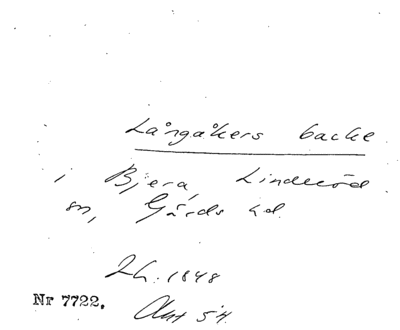 Långåkers backe
i Bjera, Linderöd
sn, Gärds hd.
Lh. 1848
Nr 7722. Akt 54